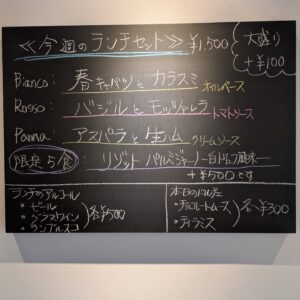 ≪今週のランチセット≫ ¥1,500
大盛り
+¥100
Bianco: 春キャベツとカラスミ オイルベース
Rosso: バジルとモッツァレラ トマトソース
Panna: アスパラと生ハム クリームソース
限定5食: リゾット パルミジャーノ 白トリュフ風味
+¥500です
ランチのアルコール
・ビール
・グラスワイン
・ランブルスコ
各¥500
本日のドルチェ
・チョコレートムース
・ティラミス
各¥300